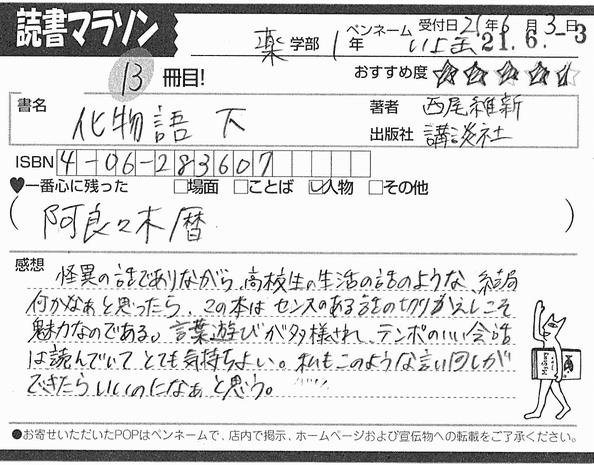 読書マラソン
薬 学部 1 年
ペンネーム いよ
受付日 21年 6月 3日
21.6.-3
13 冊目!
おすすめ度
書名
化物語 下
著者 西尾維新
出版社 講談社
ISBN 4-06-283607
♥一番心に残った □場面 □ことば ☑人物 □その他
( 阿良々木暦 )
感想
怪異の話でありながら、高校生の生活の話のような、結局
何かなぁと思ったら、この本はセンスのある話の切りかえしこそ
魅力なのである。言葉遊びが多様され、テンポのいい会話
は読んでいてとても気持ちよい。私もこのような言い回しが
できたらいいのになぁと思う。
●お寄せいただいたPOPはペンネームで、店内で掲示、ホームページおよび宣伝物への転載をご了承ください。